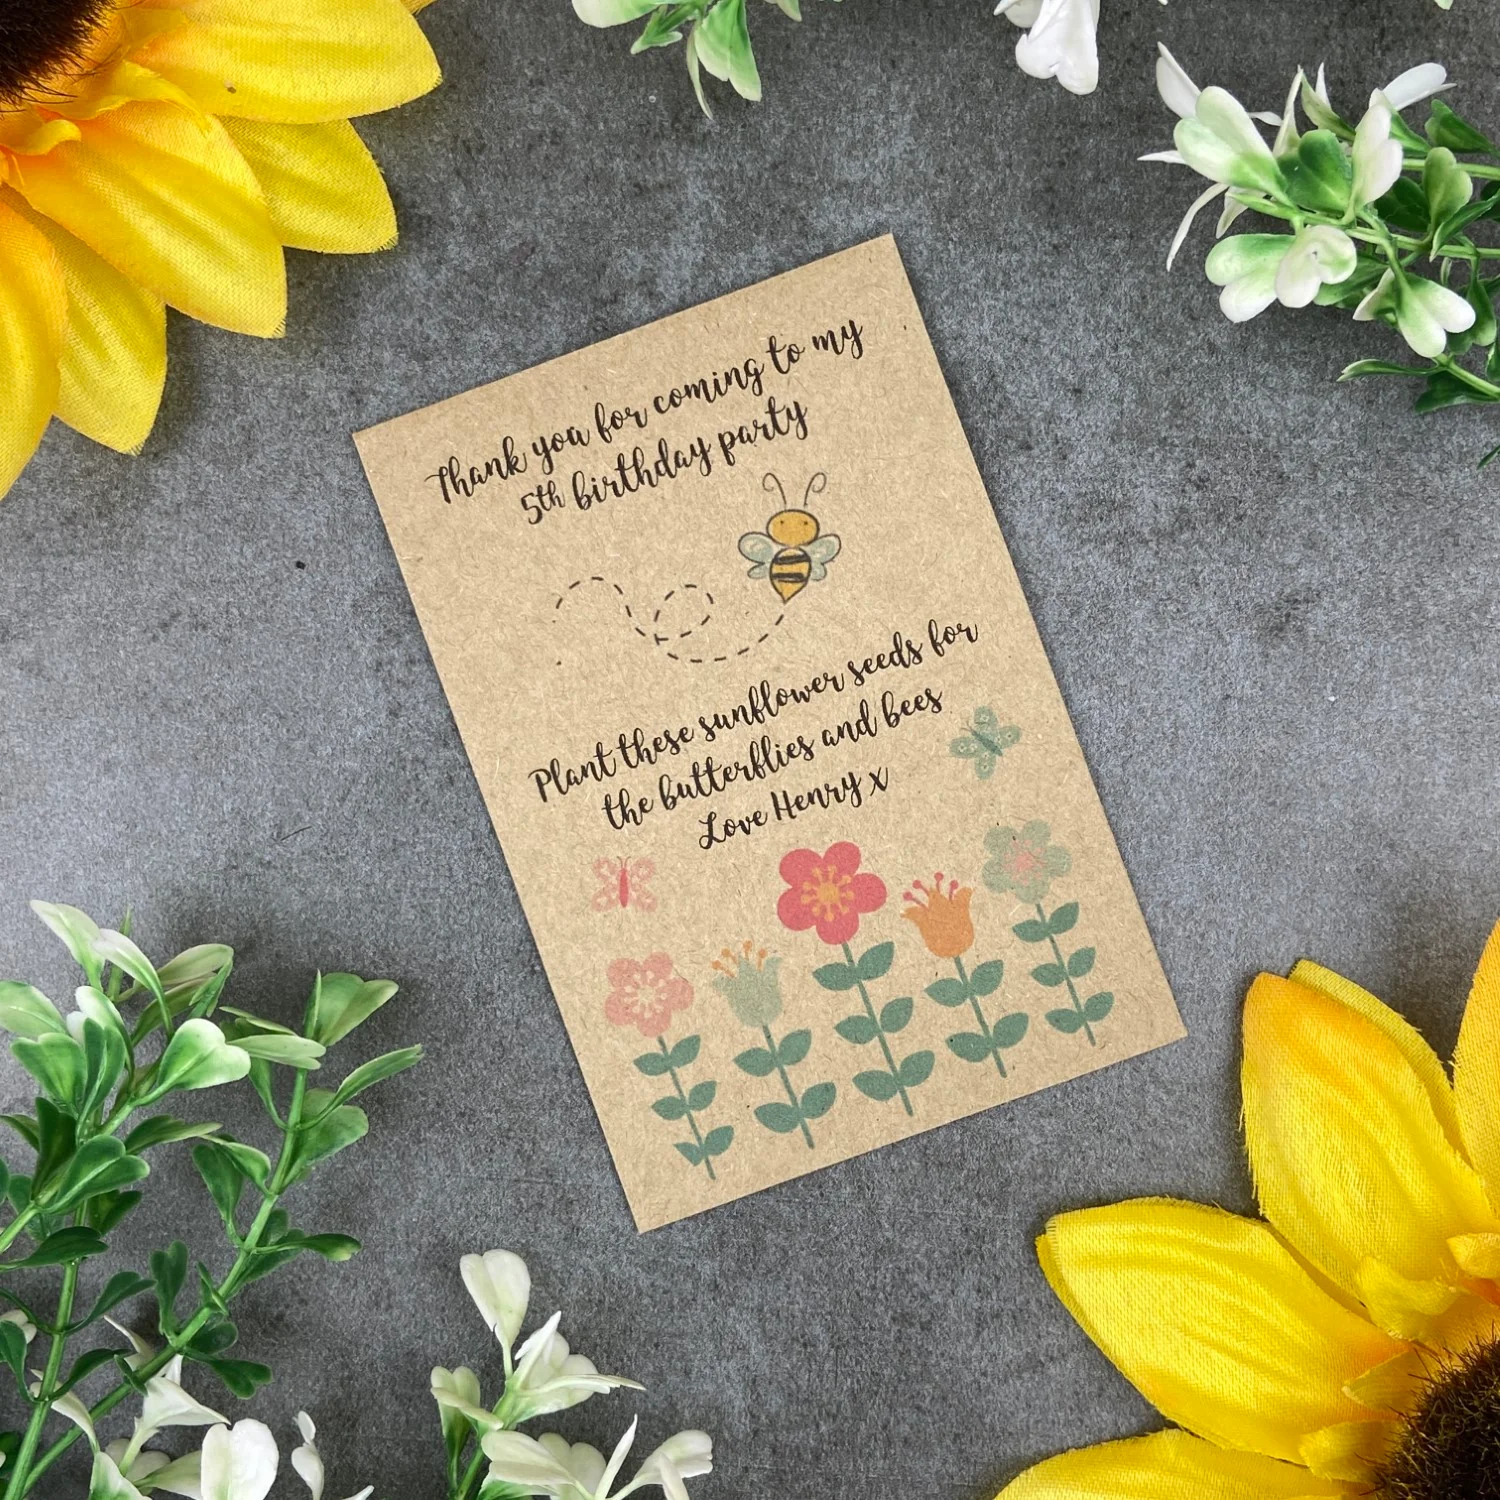 Thank you for coming to my
5th birthday party
Plant these sunflower seeds for
the butterflies and bees
Love Henry x